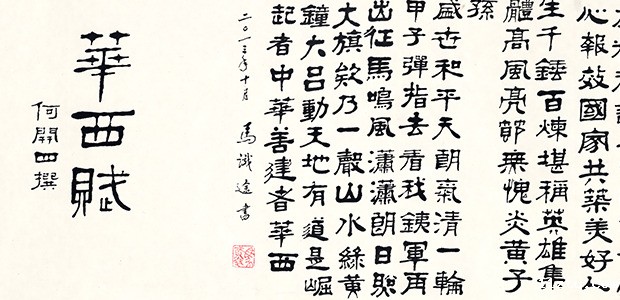 心報效國家共築美好人
生千錘百煉堪稱英雄集
體高風亮節無愧炎黃子
孫
盛世和平天朗氣清一輪
甲子彈指去看我銕軍再
出征馬鳴風瀟瀟朗日照
大旗欸乃一聲山水綠黃
鐘大吕動天地有道是崛
起者中華善建者華西
二〇一三年十月 馬識途書
華西賦
何開四撰